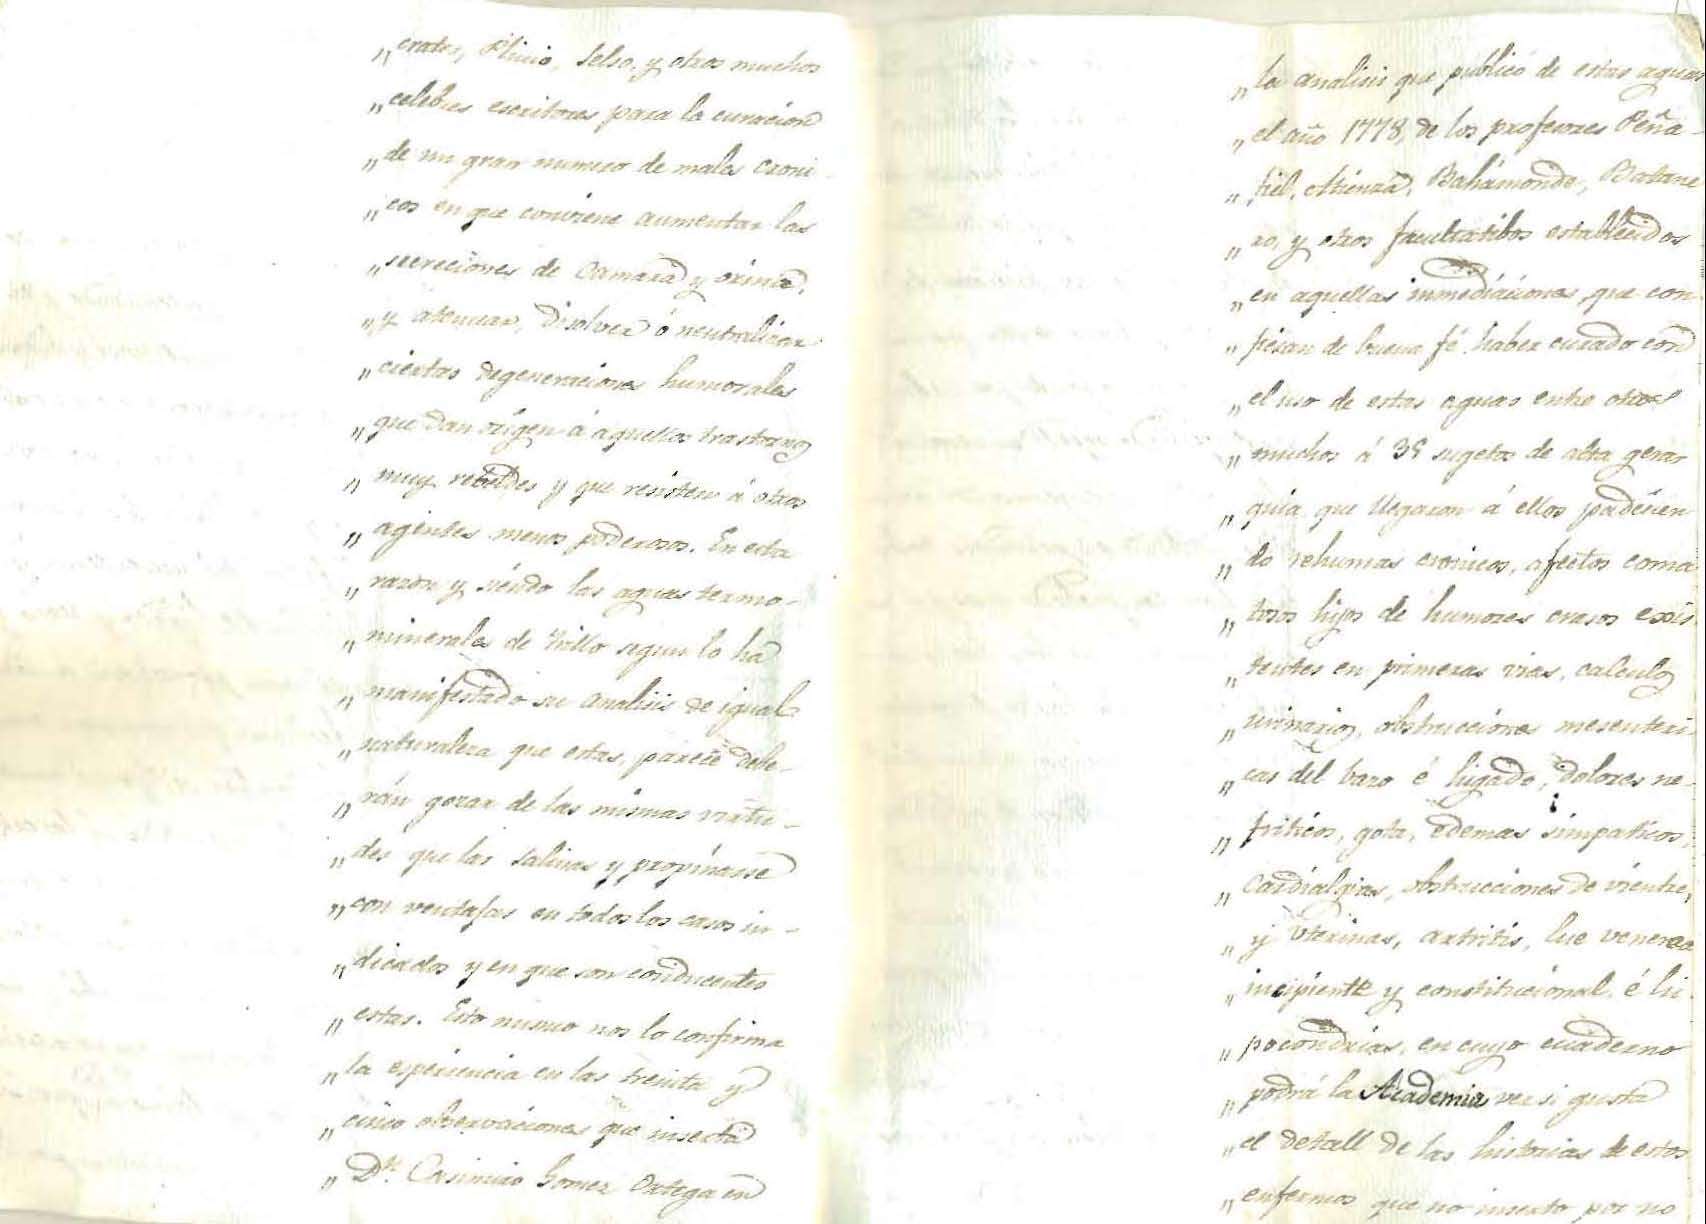 „crates, Plinio, Selso, y otros muchos
„celebres escritores para la curacion
„de un gran numero de males croni-
„cos en que conviene aumentar las
„secreciones de camara y orina,
„y atenuar, disolver ó neutralizar
„ciertas degeneraciones humorales
„que dan orígen á aquellos trastornos
„muy rebeldes y que resisten á otros
„agentes menos poderosos. En esta
„razon y siendo las aguas termo-
„minerales de Trillo segun lo ha
„manifestado su analisis de igual
„naturaleza que estas, parece debe-
„rán gozar de las mismas virtu-
„des que las salinas y propinarse
„con ventajas en todos los casos in-
„dicados y en que son conducentes
„estas. Esto mismo nos lo confirma
„la esperiencia en las treinta y
„cinco observaciones que inserta
„Dn. Casimiro Gomez Ortega en
„la analisis que publicó de estas aguas
„el año 1778, de los profesores Peña-
„fiel, Atienza, Bahamonde, Batane
„ro, y otros facultatibos establecidos
„en aquellas inmediaciones, que con-
„fiesan de buena fé haber curado con
„el uso de estas aguas entre otros
„muchos á 35 sugetos de alta gerar
„quia que llegaron á ellos padecien
„do rehumas cronicos, afectos coma
„tosos hijos de humores crasos exis
„tentes en primeras vias, calculos
„urinarios, obstrucciones mesenteri-
„cas del bazo é higado, dolores ne-
„friticos, gota, edemas simpaticos,
„cardialgias, obstrucciones de vientre,
„y uterinas, artritis, lue venerea
„incipiente y constitucional, é hi
„pocondrias, en cuyo cuaderno
„podrá la Academia ver si gusta
„el detall de las historias de estos
„enfermos que no inserto por no